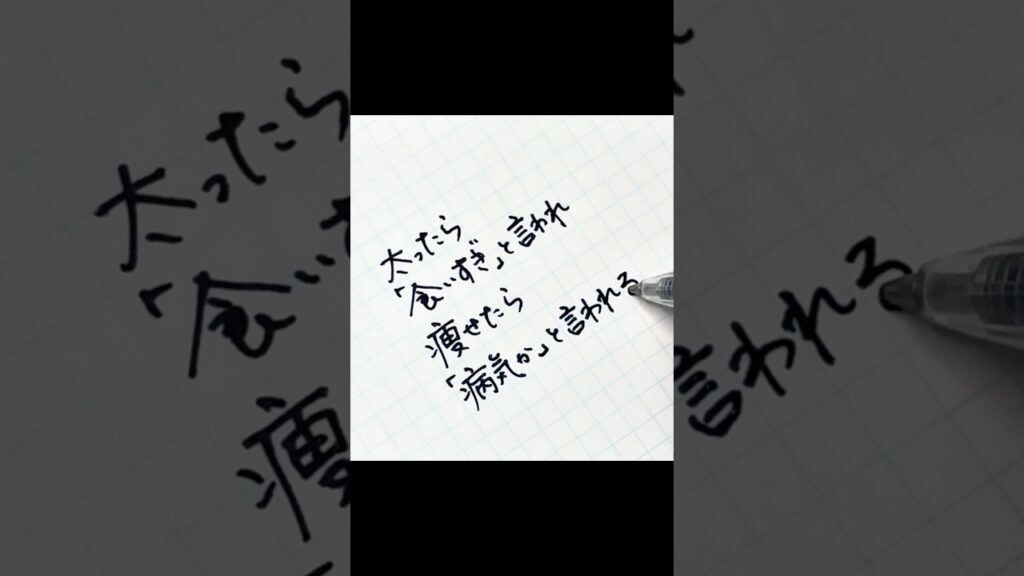 太ったら
「食いすぎ」と言われ
痩せたら
「病気か」と言われる